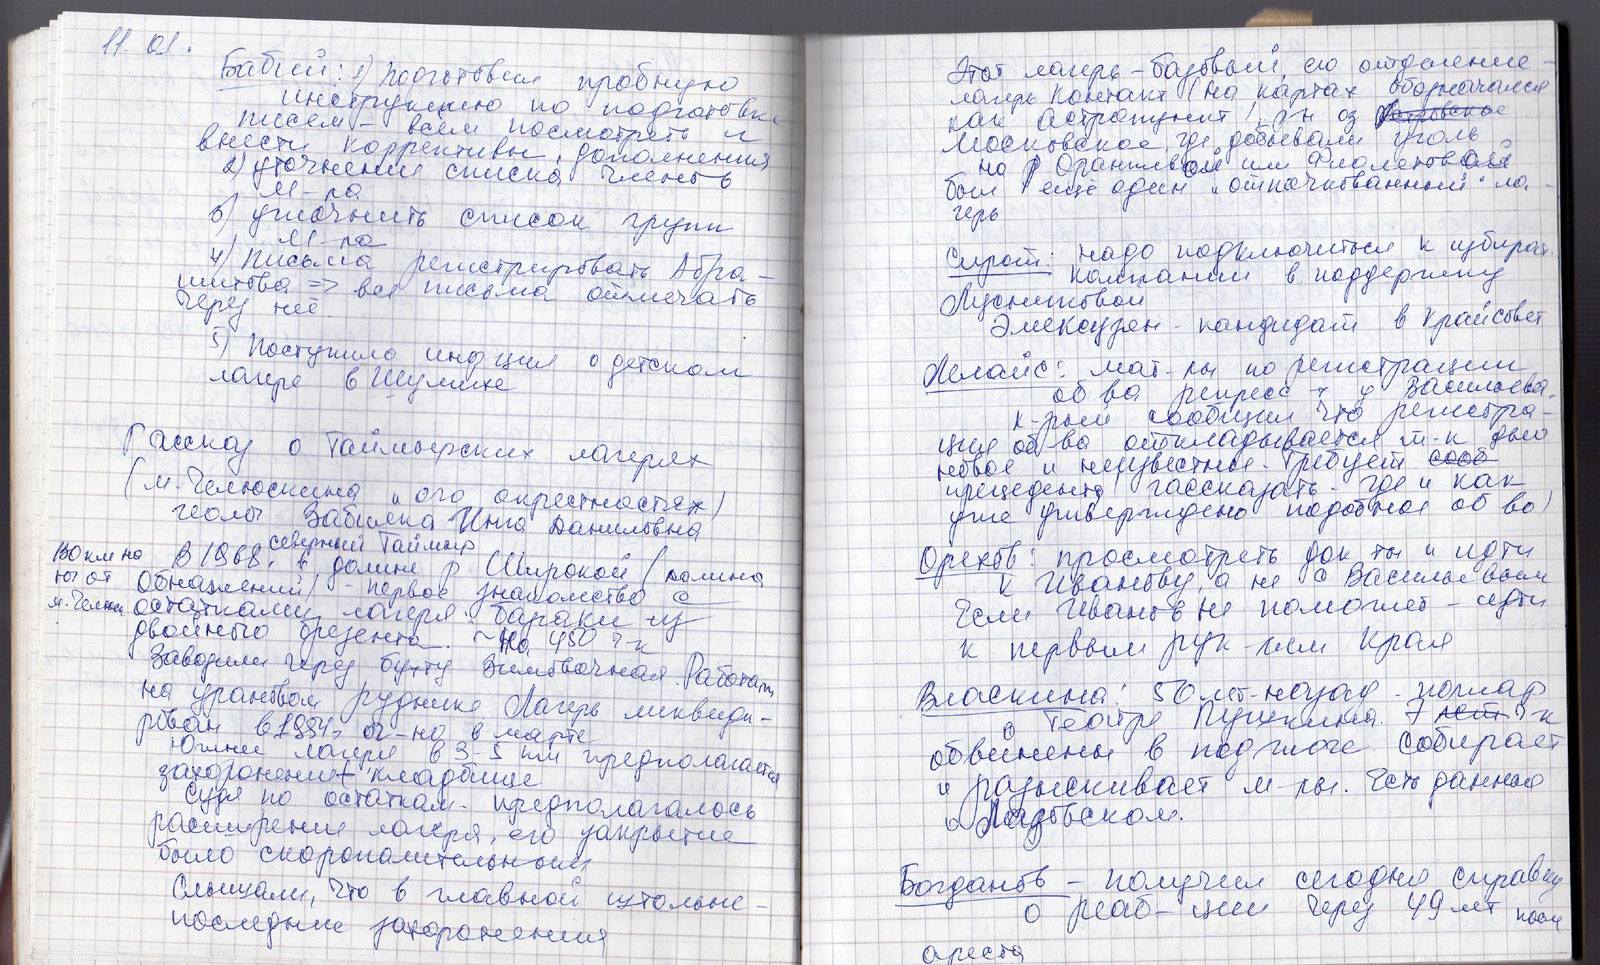 11.01.
Бабий: 1) подготовил пробную
инструкцию по подготовке
писем – всем посмотреть и
внести коррективы, дополнения
2) уточнение списка членов
М-ла
3) уточнить список групп
М-ла
4) письма регистрировать Абра-
шитова => все письма отмечать
через неё.
5) Поступила инф-ция о детском
лагере в Шушике
Рассказ о Таймырских лагерях
(м. Челюскина и его окрестностях)
геолог Забияка Инга Даниловна
северный Таймыр
130 км на
юг от
м. Челюс
В 1968г. в долине р. Широкой (долина
Обнажений) – первое знакомство с
остатками лагеря. бараки из
двойного брезента. ~ На 450 з-к
Заводили через бухту Зимовочная. Работали
на урановом руднике. Лагерь ликвиди-
рован в 1954г. ок-но в марте
Южнее лагеря в 3-5 км предполагается
захоронение + кладбище
Судя по остаткам предполагалось
расширение лагеря, его закрытие
было скоропалительным
Слышали, что в главной штольне –
последние захоронения
Этот лагерь – базовый, его отделение –
лагерь Контакт (на картах обозначался
как астропункт), р-н оз
Московское, где добывали уголь
На р. или
был ещё один „отпочкованный“ ла-
герь
Сирот.: надо подключиться к избират.
компании в поддержку
кандидат в Крайсовет
мат-лы по регистрации
об-ва репресс-х у Васильева,
к-рый сообщил что регистра-
ция об-ва откладывается т-к дело
новое и неизвестное. Требует сооб
прецедента (рассказать где и как
уже утверждено подобное об-во)
Орехов: просмотреть док-ты и идти
к Иванову, а не с Васильевым
Если Иванов не поможет – идти
к первым рук-лям края
Власкина: 50 лет назад – пожар
в Театре Пушкина. 7 лет ч-к
обвинены в поджоге. Собирает
и разыскивает м-лы. Есть данные
о
Богданов – получил сегодня справку
о реаб-ции через 49 лет после
ареста